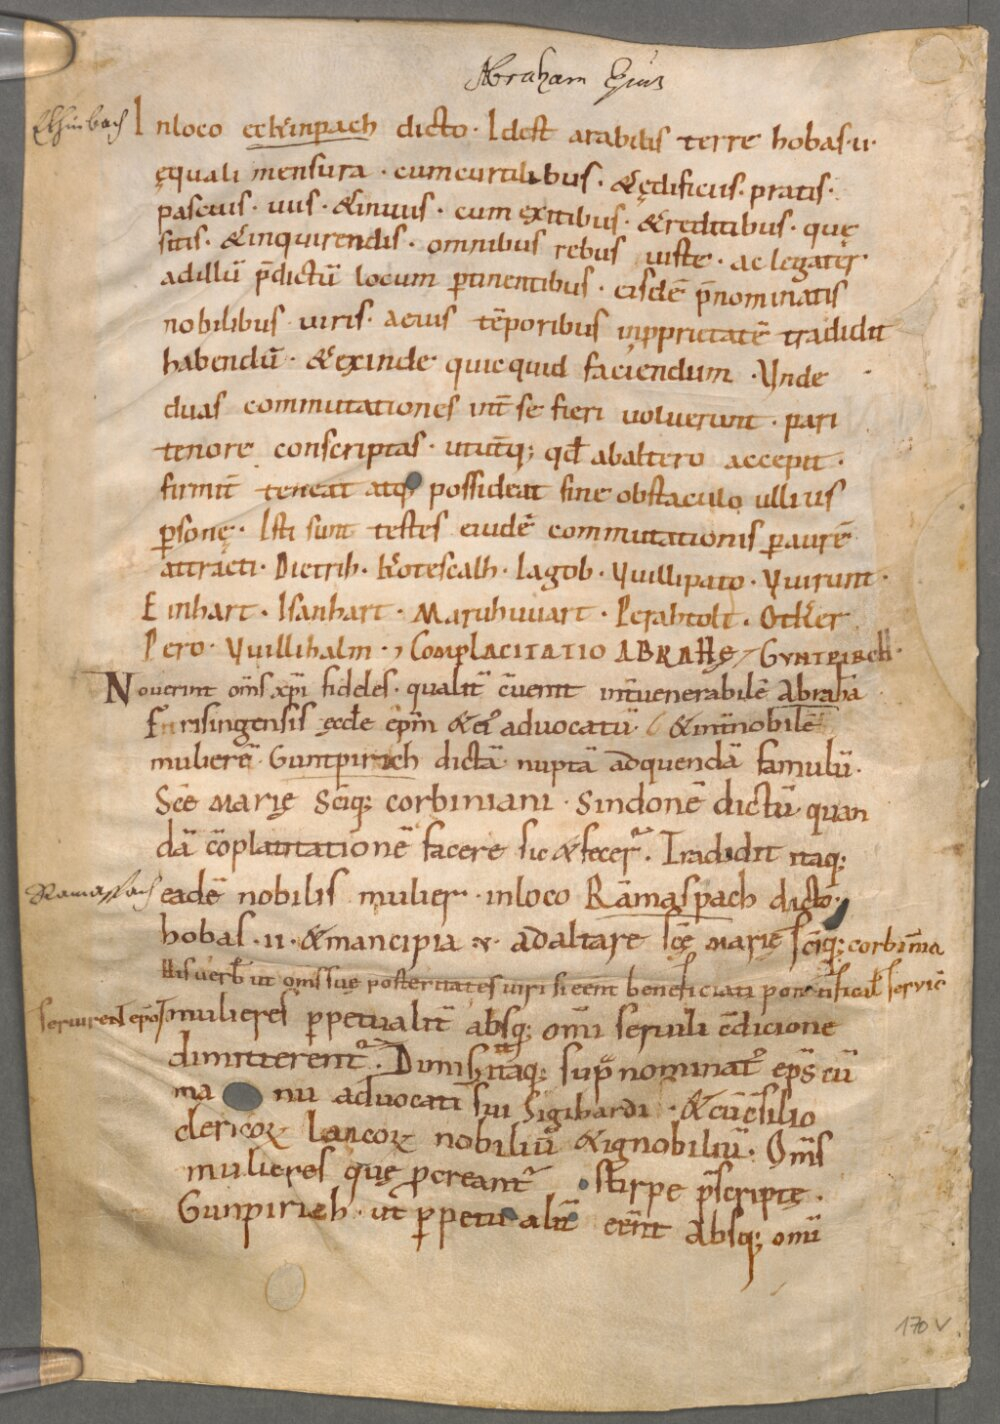 Abraham Epius
Ekhinbach
In loco eckinpach dicto · Idest arabilis terre hobas · ii ·
ęquali mensura · cumcurtilibus · &ędificiis · pratis ·
pascuis · uiis · &inuiis · cum exitibus · &reditibus · quę
sitis · &inquirendis · omnibus rebus iuste · ac legaliter
adillū p̄dictū locum ꝑtinentibus · eisdē p̄nominatis
nobilibus uiris · aeuis tēporibus inꝓprietatē tradidit
habendū · &exinde quicquid faciendum · Vnde
duas commutationes int̄ se fieri uoluerunt · pari
tenore conscriptas · ututq; qđ abaltero accepit ·
firmit̄ teneat atq; possideat sine obstaculo ullius
ꝑsonę · Isti sunt testes eiusdē commutationis ꝑaurē
attracti · Dietrih · Kotescalh · Iagob · Vuillipato · Vuirunt ·
Einhart · Isanhart · Maruhuuart · Perahtolt · Otker
Pero · Vuillihalm · Complacitatio ABRAHę / GVNTPIRCH ·
Nouerint om̄s xp̄i fideles · qualit̄ c̄uenit int̄uenerabilē Abrahā
Frisingensis ęccłe ep̄m &ei᾽ aduocatū · &int̄nobilē
mulierē Guntpirich dictā nuptā adquendā famulū ·
Sc̄e Marię Sc̄iq; corbiniani · Sindonē dictū quan
dā cōplacitationē facere sic &fecer̄ · Tradidit itaq;
Ramaspach
eadē nobilis mulier · inloco Rāmaspach dicto ·
hobas · ii · &mancipia · x · adaltare sc̄ę Marię sc̄iq; corbin̄ia
Illis uerb̄ ut om̄s suę posteritates uiri si eēnt beneficiati pontifical̄ seruic̄
seruirent ep̄o
mulieres ꝑpetualit̄ absq; omī seruili c̄dicione
dimitterent᾽ · Dimisit itaq; sup̄nominat᾽ ep̄s cū
ma nu aduocati sui Sigihardi · &cūc̄silio
clericoꝝ laicoꝝ nobiliū &ignobiliū · Om̄s
mulieres quę ꝓcreant᾽ · stirpe p̄scriptę ·
Gunpirich · ut ꝑpetualit̄ eēnt absq; omī
170 v